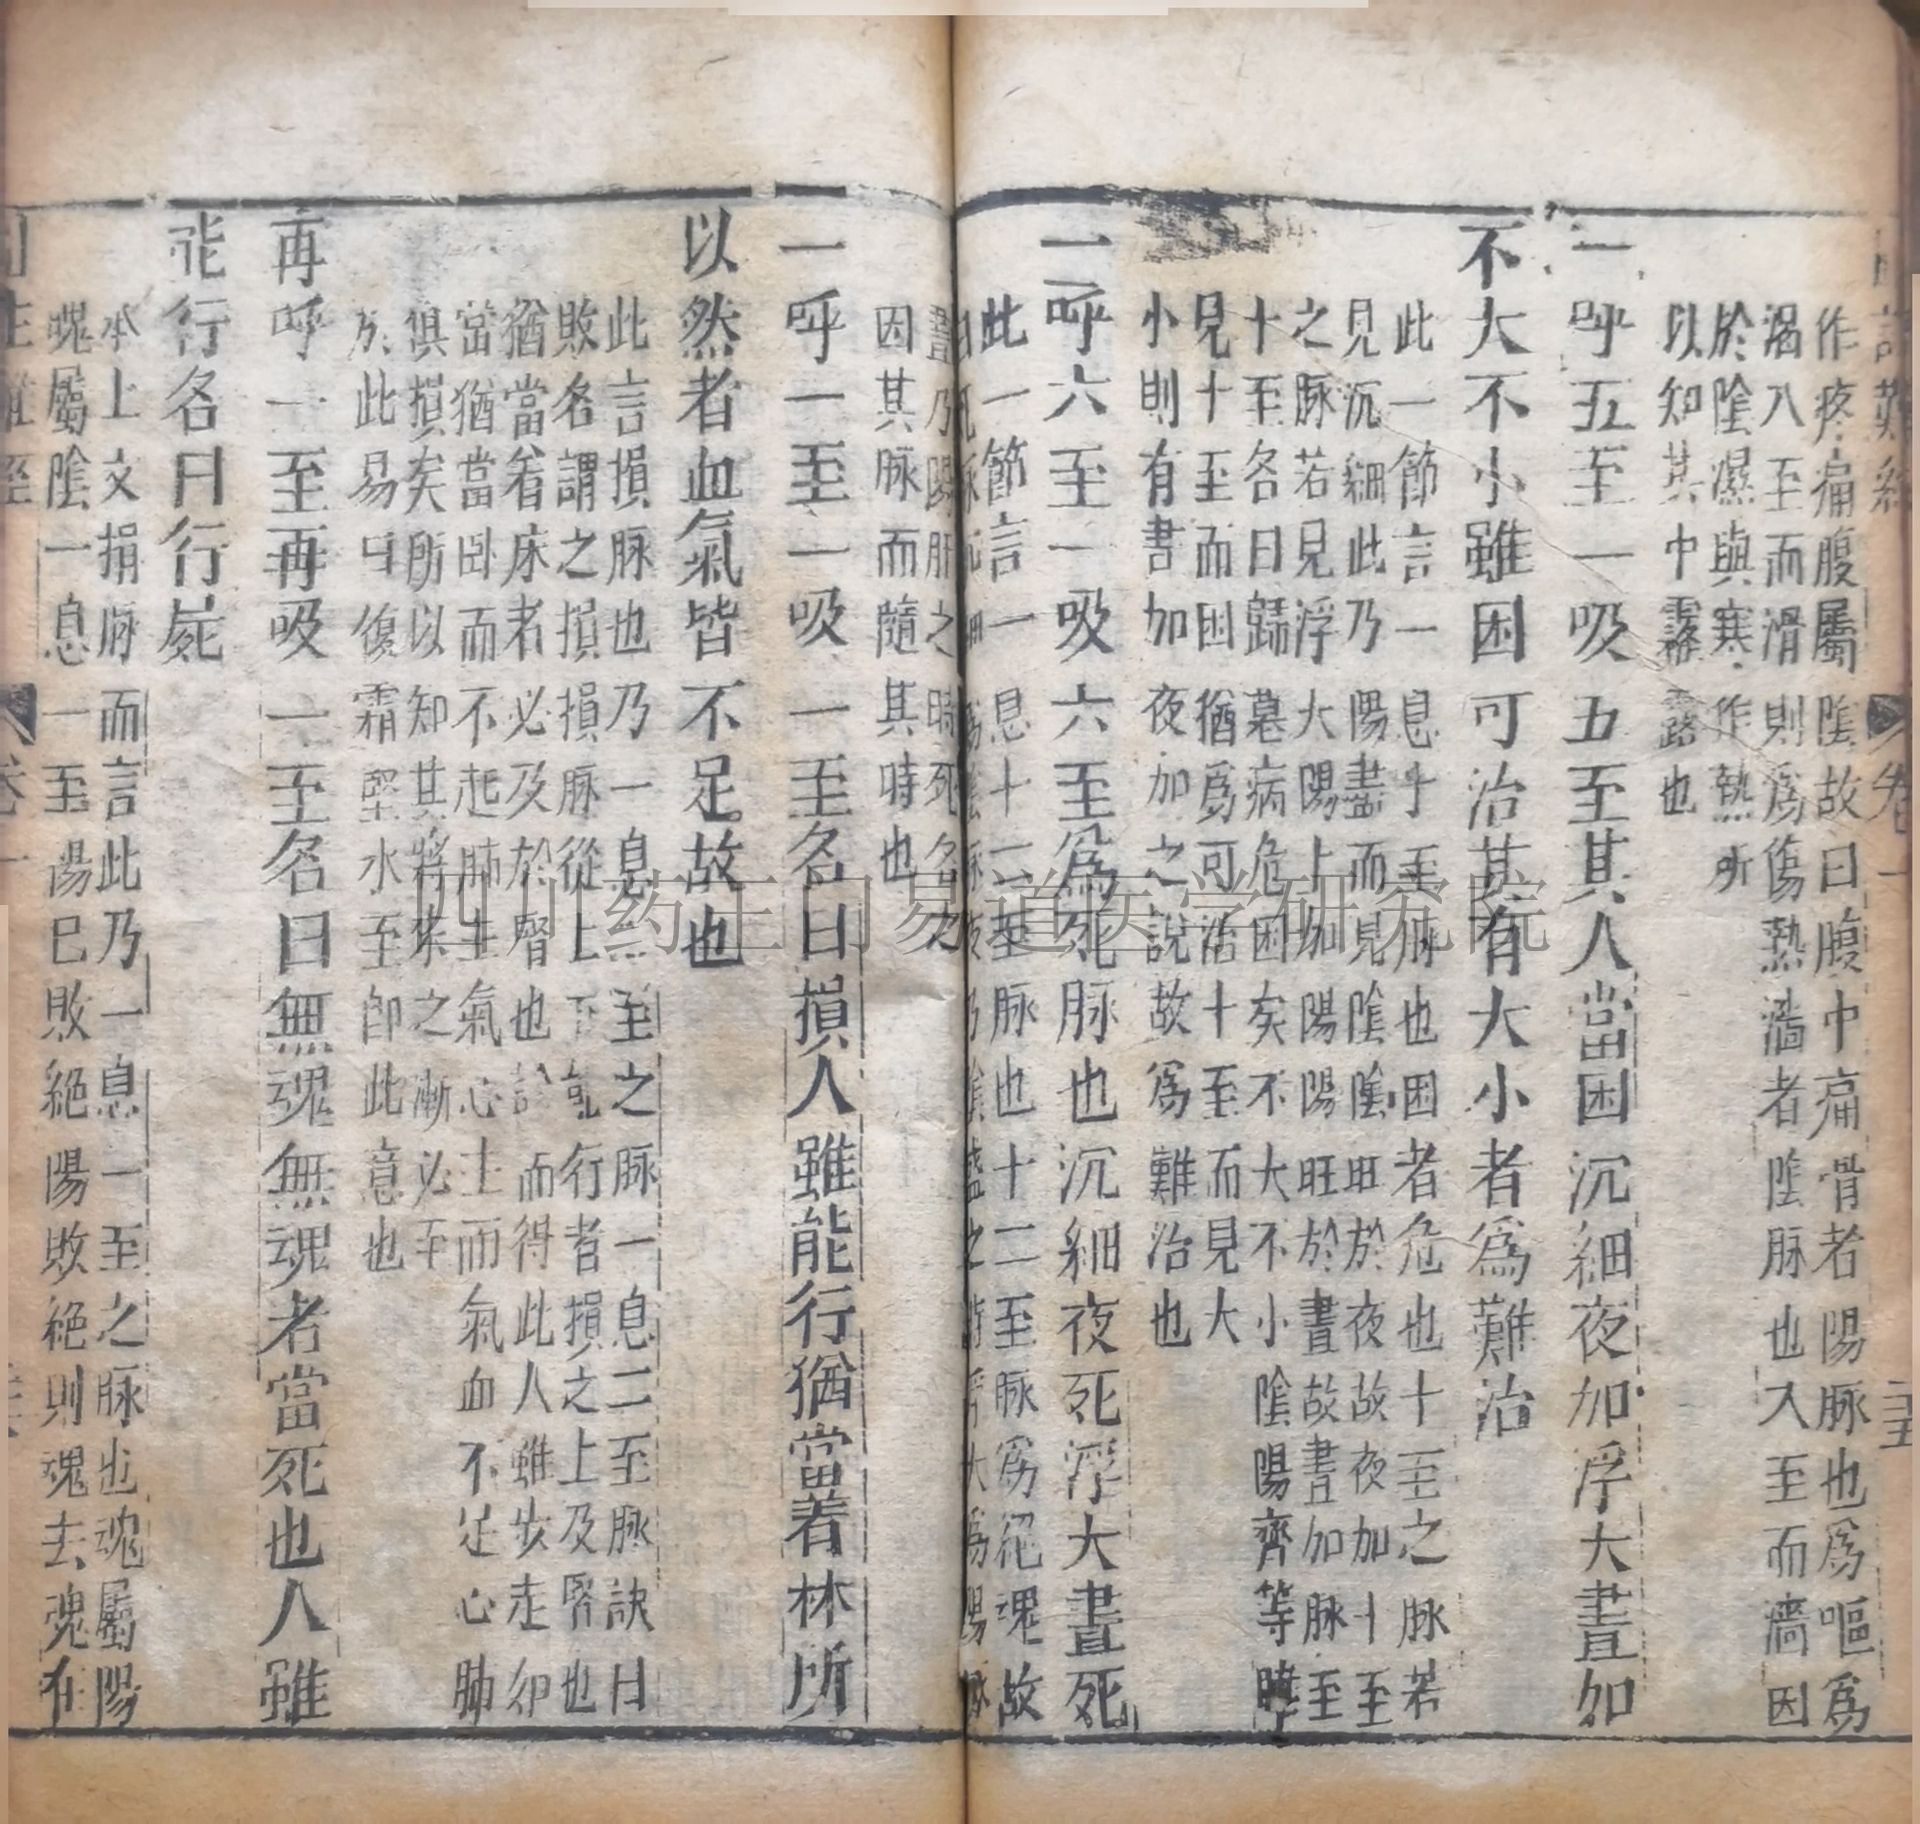 作疼痛腹屬陰故曰腹中痛骨者陽脉也爲嘔爲
渴八至而滑則爲傷熱濇者陰脉也入至而濇因
於陰濕與寒作熱所
以知其中霧露也
一呼五至一吸五至其人當困沉細夜加浮大晝加
不大不小雖困可治其有大小者爲難治
此一節言一息十至脉也困者危也十至之脉若
見沉細此乃陽盡而見陰陰旺於夜故夜加十至
之脉若見浮大陽上加陽陽旺於晝故晝加脉至
十至各曰歸墓病危困矣不大不小陰陽齊等
見十至而困猶爲可治十至而見大
小則有書加夜加之說故爲難治也
一呼六至一吸六至爲死脉也沉細夜死浮大晝死
此一節言一息十二至脉也十二至脉爲絕魂故
晝乃陽肝之時死各之
因其脉而隨其時也
一呼一至一吸一至名曰損人雖能行猶當着林所
以然者血氣皆不足故也
此言損脉也乃一息二至之脉一息二至脉訣曰
敗名謂之損損脉從上下
行者損之上及腎也
猶當着床者必及於腎也
而得此人雖步走卻
當猶當臥而不起肺主氣心主而氣血不足心肺
俱損矣所以知其將來之漸必至
於此易曰復霜堅水至卽此意也
再呼一至再吸一至名曰無魂無魂者當死也人雖
能行名曰行屍
承上文損脉而言此乃一息一至之脉也魂屬陽
魄屬陰一息一至陽已敗絕陽敗絕則魂去魂在
卷一
四川药王口易道医学研究院